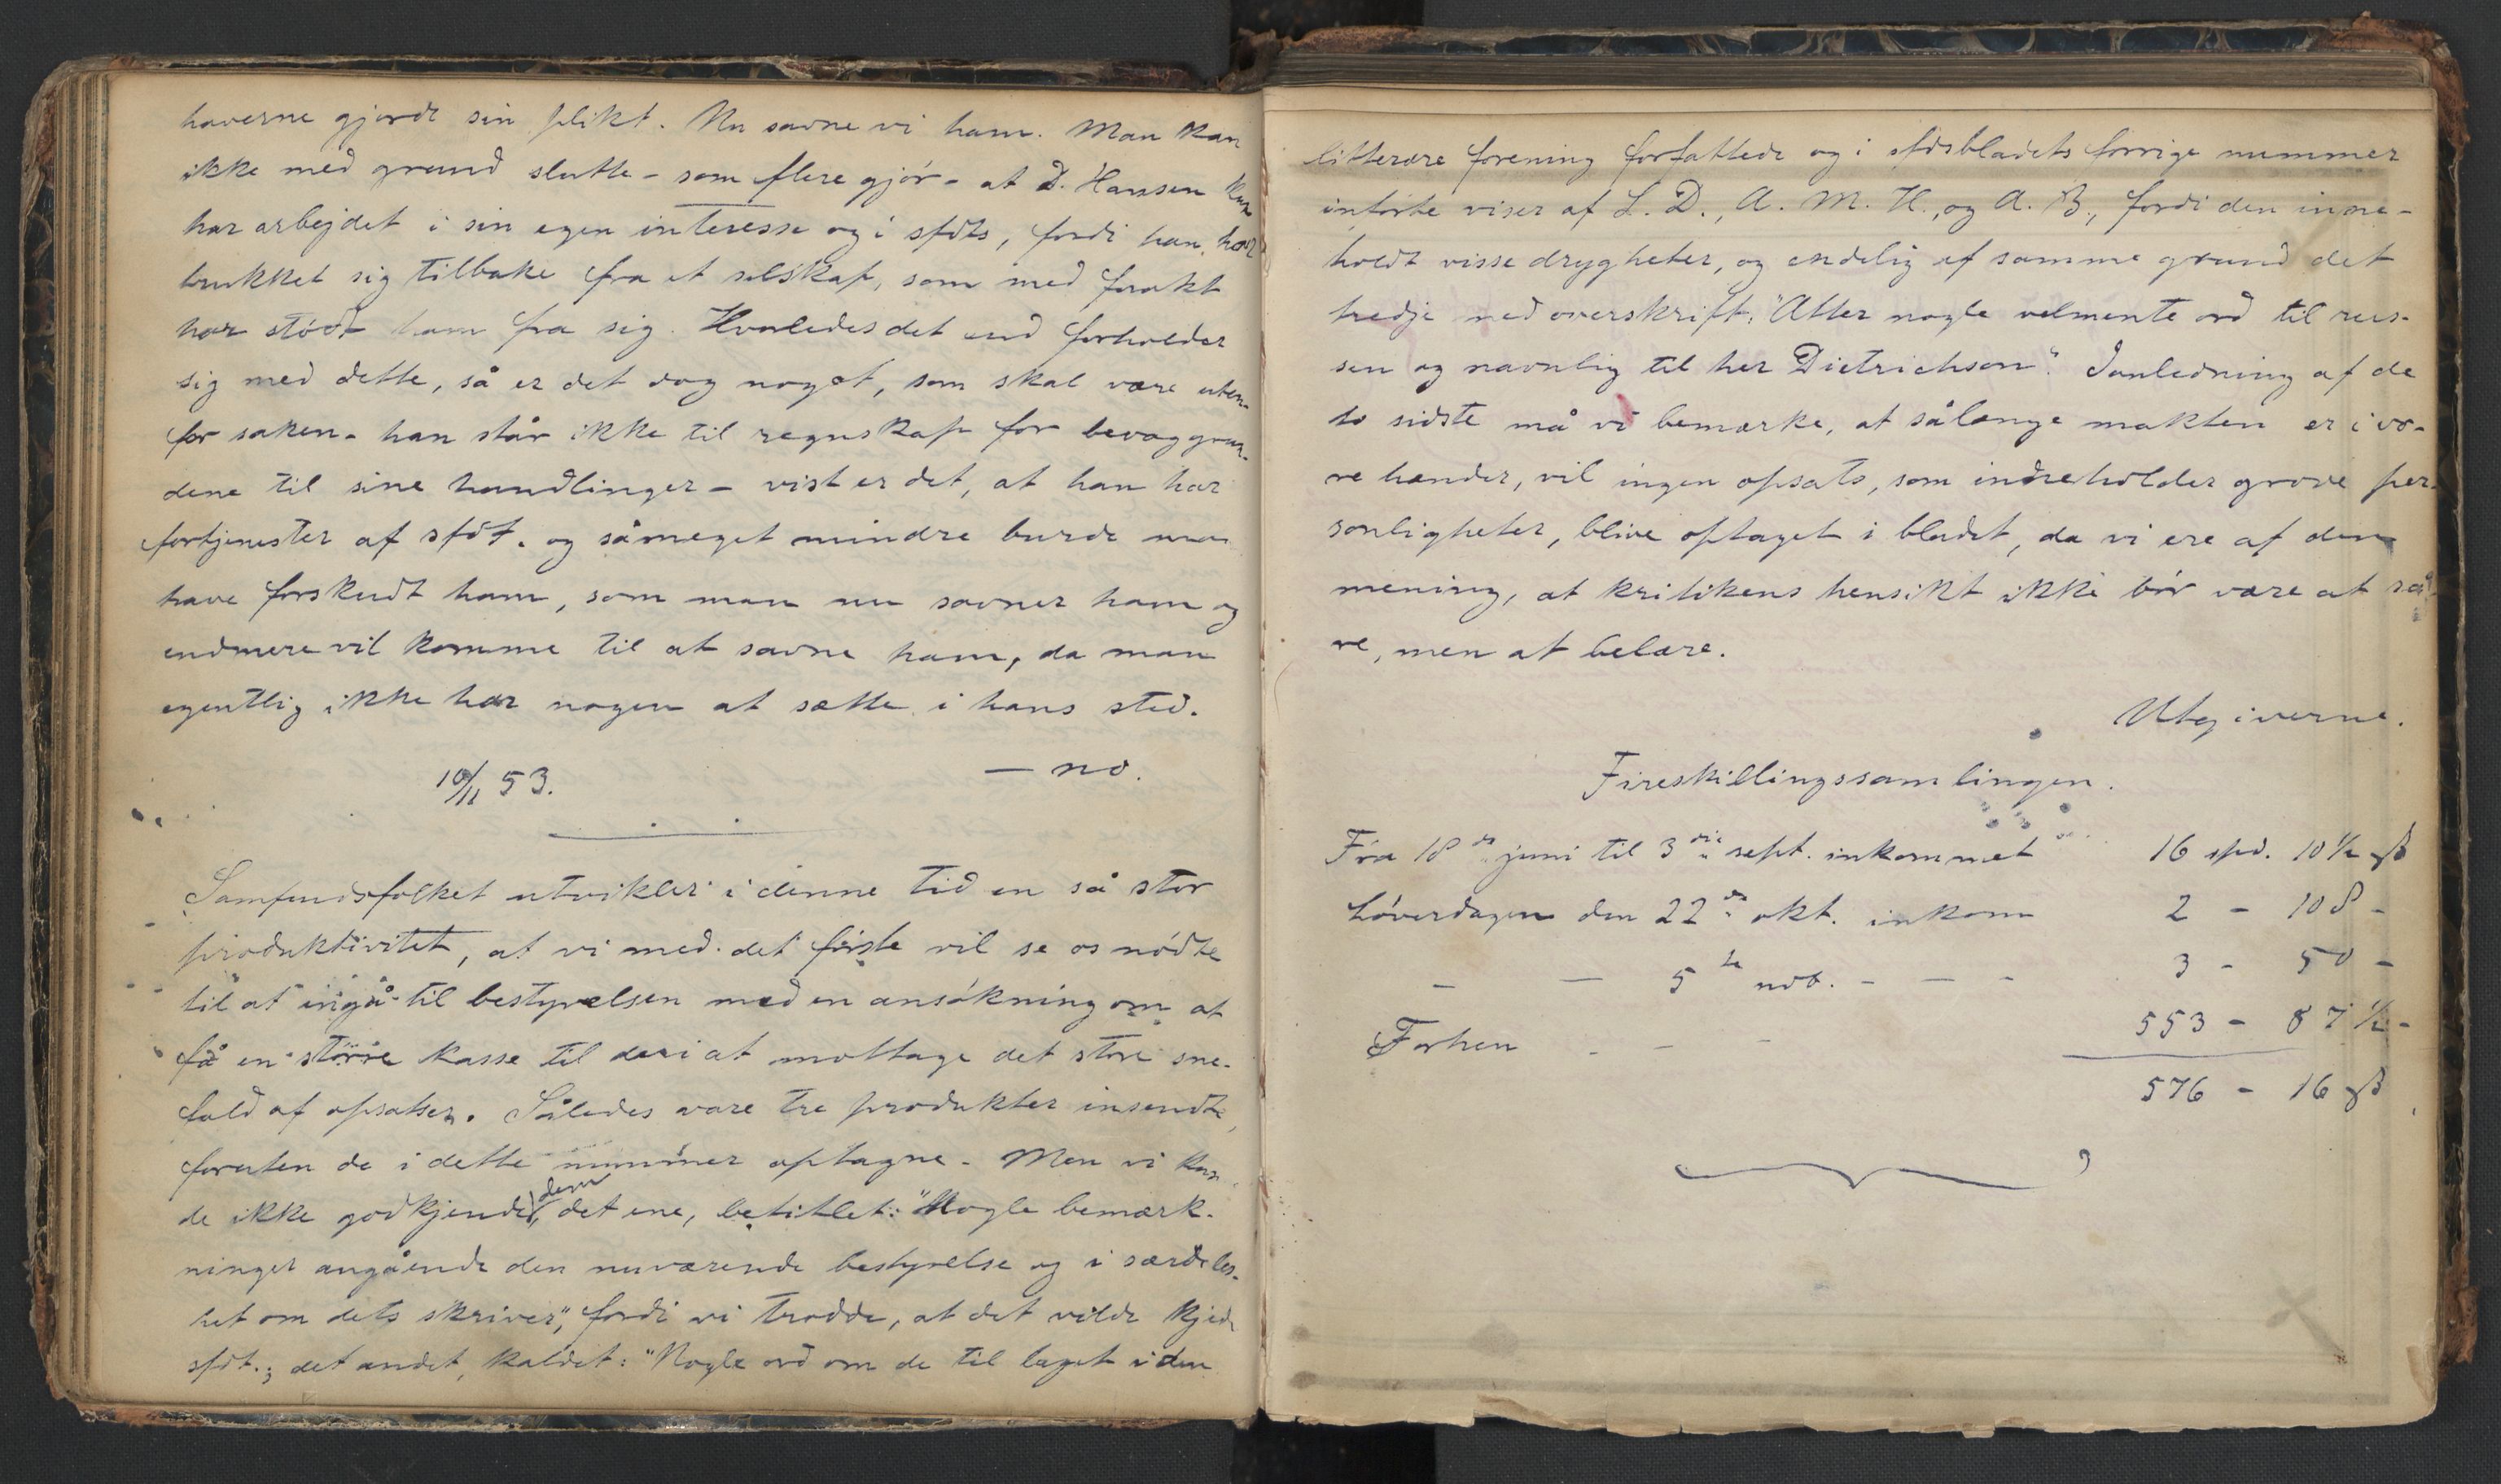 haverne gjordt sin plikt. Nu savne vi ham. Man kan
ikke med grund slutte - som flere gjör - at D. Hansen kun
har arbejdet i sin egen interesse og i sfdts, fordi han har
trukket sig tilbake fra et selskap, som med forakt
har stödt ham fra sig. Hvorledes det end forholder
sig med dette, så er det dog noget, som skal være uten-
for saken - han står ikke til regnskap for bevæggrun-
dene til sine handlinger - vist er det, at han har
fortjenester af sfdt. og såmeget mindre burde man
have forskudt ham, som man nu savner ham og
endmere vil komme til at savne ham, da man
egentlig ikke har nogen at sætte i hans sted.
10/11 53. — no.
Samfundsfolket utvikler i denne tid en så stor
produktivitet, at vi med det förste vil se os nödte
til at ingå til bestyrelsen med en ansökning om at
få en större kasse til deri at mottage det store sne-
fald af opsatser. Således vare tre produkter insendte,
foruten de i dette nummer optagne. Men vi kun-
de ikke godkjende dem, det ene, betitlet: "Nogle bemærk-
ninger angående den nuværende bestyrelse og i særdeles-
het om dets skriver", fordi vi trodde, at det vilde kjede
sfdt.; det andet, kaldet: "Nogle ord om de til laget i den
litterære forening forfattede og i sfdsbladets forrige nummer
införte viser af L. D., A. M. H., og A. B., fordi den inne-
holdt visse drygheter, og endelig af samme grund det
tredje med overskrift: "Atter nogle velmente ord til rus-
sen og navnlig til her Dietrichson". I anledning af de
to sidste må vi bemærke, at sålænge makten er i vo-
re hænder, vil ingen opsats, som indeholder grove per-
sonligheter, blive optaget i bladet, da vi ere af den
mening, at kritikens hensikt ikke bör være at så-
re, men at belære.
Utgiverne.
Fireskillingssamlingen.
Fra 18de juni til 3die sept. inkommet 16 spd. 10½ ß
Löverdagen den 22de okt. inkom 2 - 108 -
— — 5te nov. - — - 3 - 50 -
Forhen - — - 553 - 87½ -
576 - 16 ß